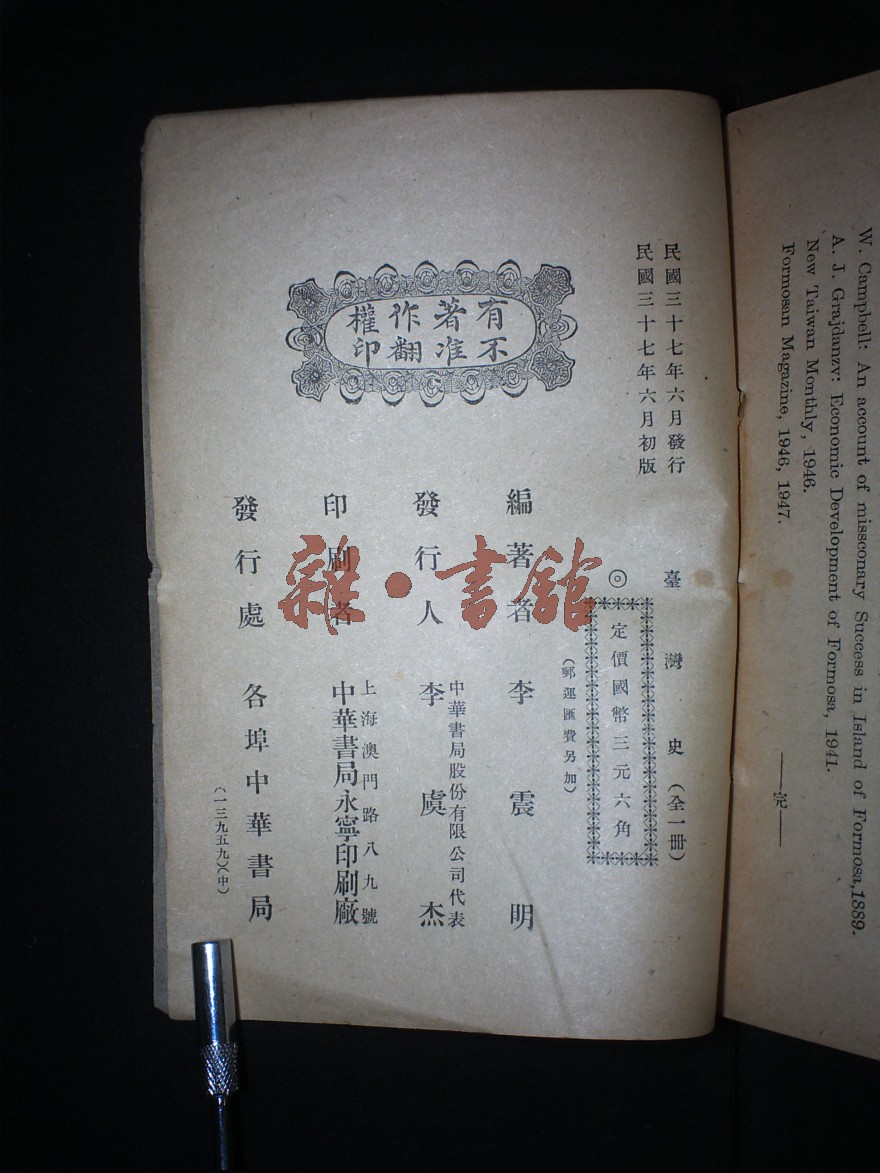 W. Campbell: An account of missconary Success in Island of Formosa,1889.
A. J. Grajdanzv: Economic Development of Formosa, 1941.
New Taiwan Monthly, 1946.
Formosan Magazine, 1946, 1947.
——完——
民國三十七年六月發行
民國三十七年六月初版
有著作權
不准翻印
臺灣史(全一冊)
◎定價國幣三元六角
(郵運匯費另加)
編著者 李震明
發行人 中華書局股份有限公司代表
李虞杰
印刷者 上海澳門路八九號
中華書局永寧印刷廠
發行處 各埠中華書局
(一三九五九)(中)
雜·書館